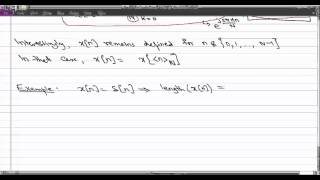 N k=0
e^{j2πkn/N}
Interestingly, x[n] remains defined for n ∈ {0,1,..., N-1}
In that case, x[n] = x[<n>_N]
Example: x[n] = δ[n] ⇒ length(x[n]) =